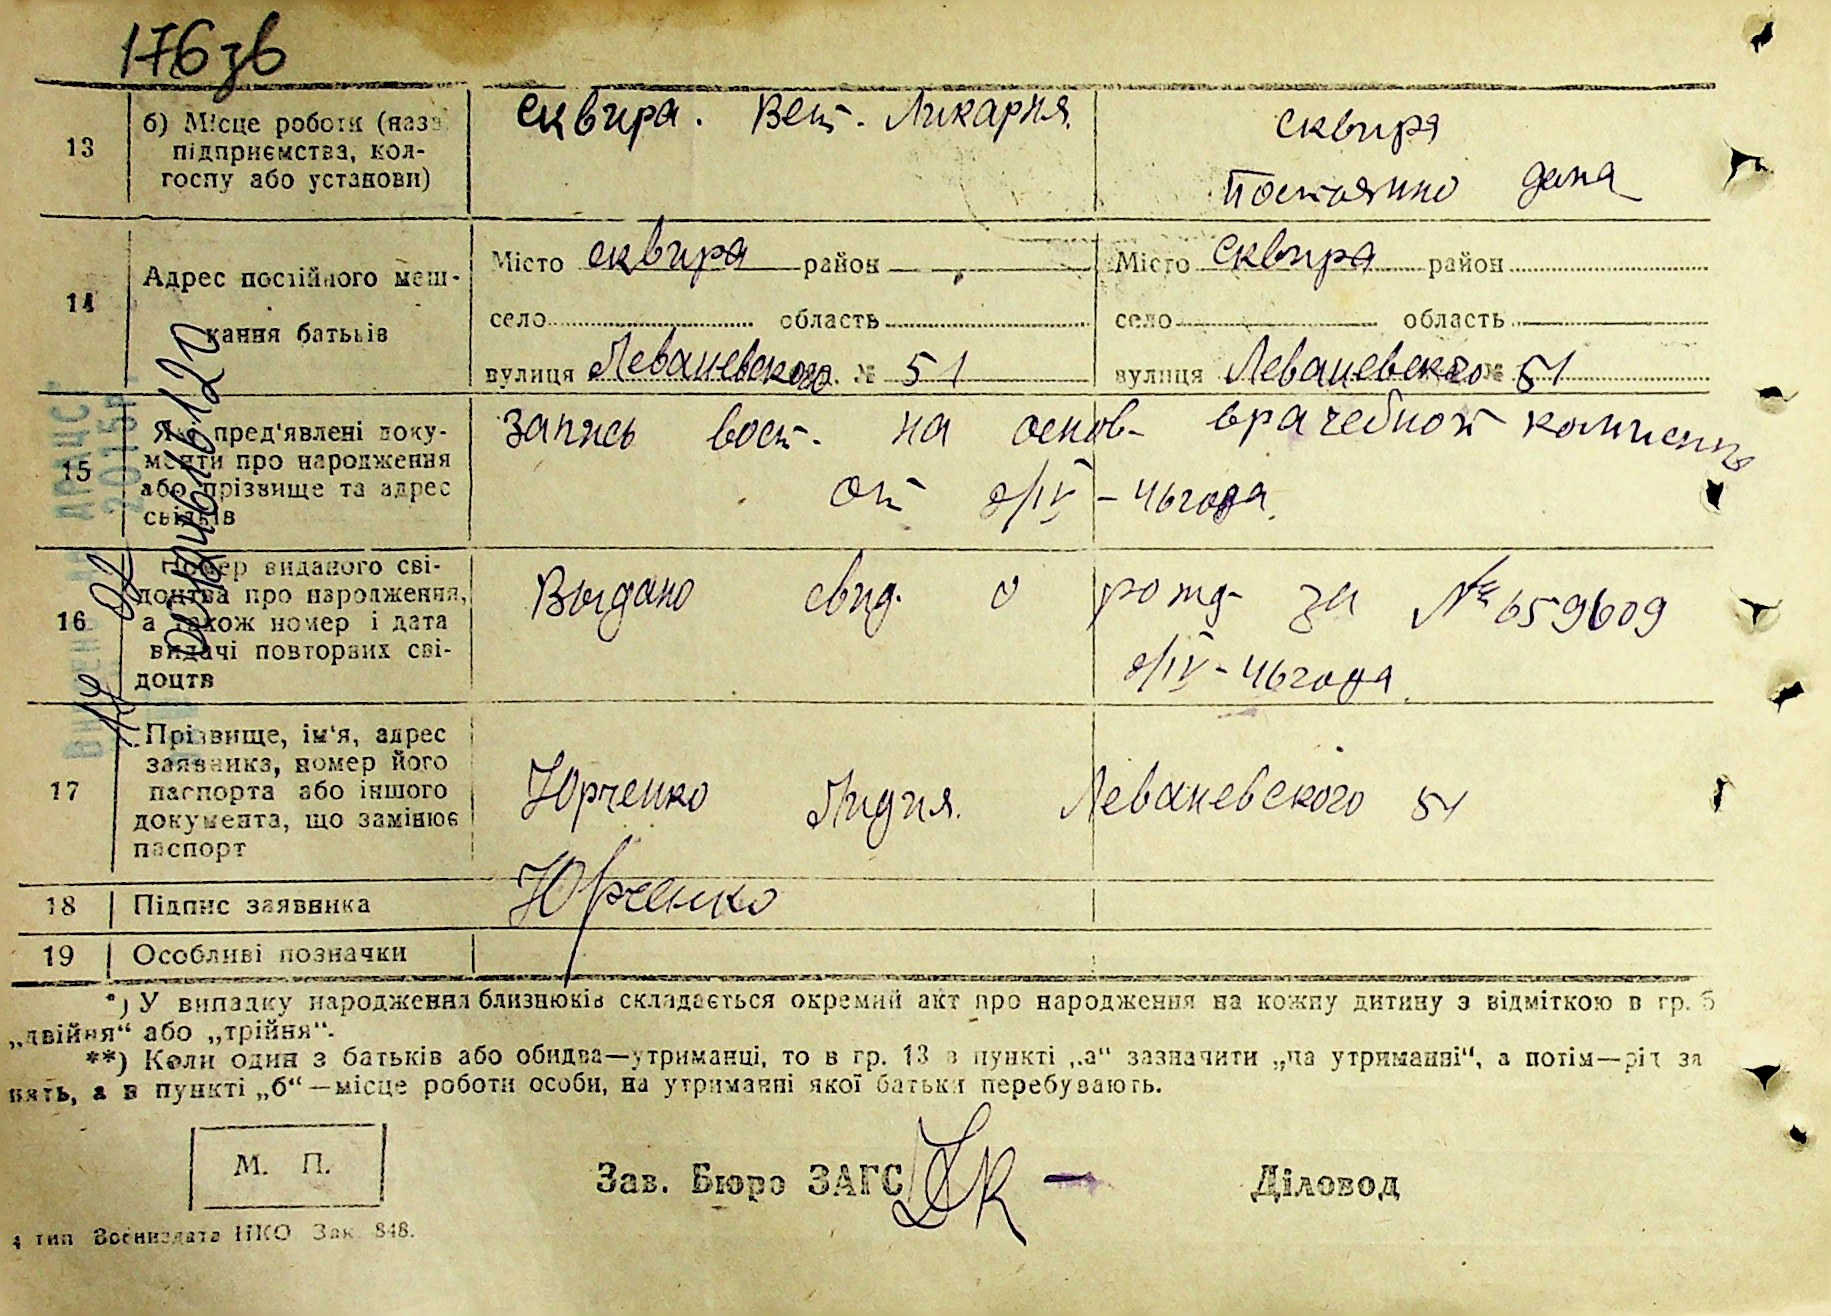 176зв
13 б) Місце роботи (назв. підприємства, кол-госпу або установи) Сквира. Вет. Ликарня. Сквиря Постоянно дома
14 Адрес постійного меш-кання батьків
Місто Сквира район Місто Сквиря район
село область село область
вулиця Леваневского № 51 вулиця Леваневского № 51
15 Які пред'явлені доку-менти про народження або прізвище та адрес свідків
Запись вост. на основ- врачебной комиссии
от 2/IV-46 года.
16 Номер виданого сві-доцтва про народження, а також номер і дата видачі повторних сві-доцтв
Выдано свид. о рожд- за № 659609
2/IV-46 года.
17 Прізвище, ім'я, адрес заявника, номер його паспорта або іншого документа, що замінює паспорт
Юрченко Лидия. Леваневского 51
18 Підпис заявника Юрченко
19 Особливі позначки
*) У випадку народження близнюків складається окремий акт про народження на кожну дитину з відміткою в гр. 5
„двійня“ або „трійня“.
**) Коли один з батьків або обидва—утриманці, то в гр. 13 в пункті „а“ зазначити „на утриманні“, а потім—рід за
нять, а в пункті „б“—місце роботи особи, на утриманні якої батьки перебувають.
М. П.
Зав. Бюро ЗАГС Діловод
4 тип Воениздата НКО Зак. 848.